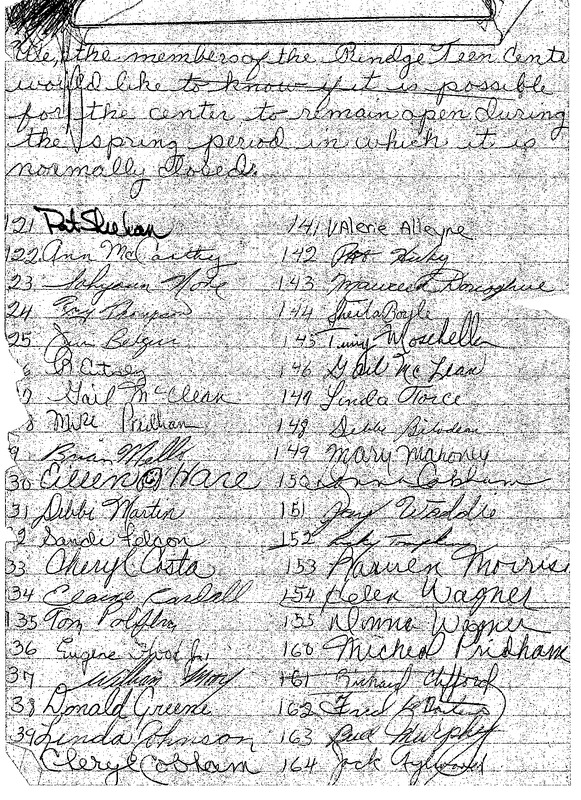 We, the members of the Rindge Teen Cente
would like to know if it is possible
for the center to remain open during
the spring period in which it is
normally closed.
121 Pat Sheehan
122 Ann McCarthy
23
24 Roy Thompson
25 Jim
6
7 Gail McClean
8 Mike Pridham
9 Brian Mello
30 Eileen O'Hare
31 Debbi Martin
2 Sandi Falcon
33 Cheryl Costa
34 Elaine Randall
135 Tom
36 Eugene
37 William
38 Donald Greene
39 Linda Johnson
Cleryl Cobham
141 Valerie Alleyne
142
143 Maureen Donoghue
144 Sheila Boyle
145 Moschella
146 Gail McLean
149 Linda Torce
148 Debbi Bilodeau
149 Mary Mahoney
150 Donna Cobham
151 Waddie
152
153 Morris
154 Helen Wagner
155 Donna Wagner
160 Micheal Pridham
161 Richard Clifford
162 Fred
163 Murphy
164 Jack